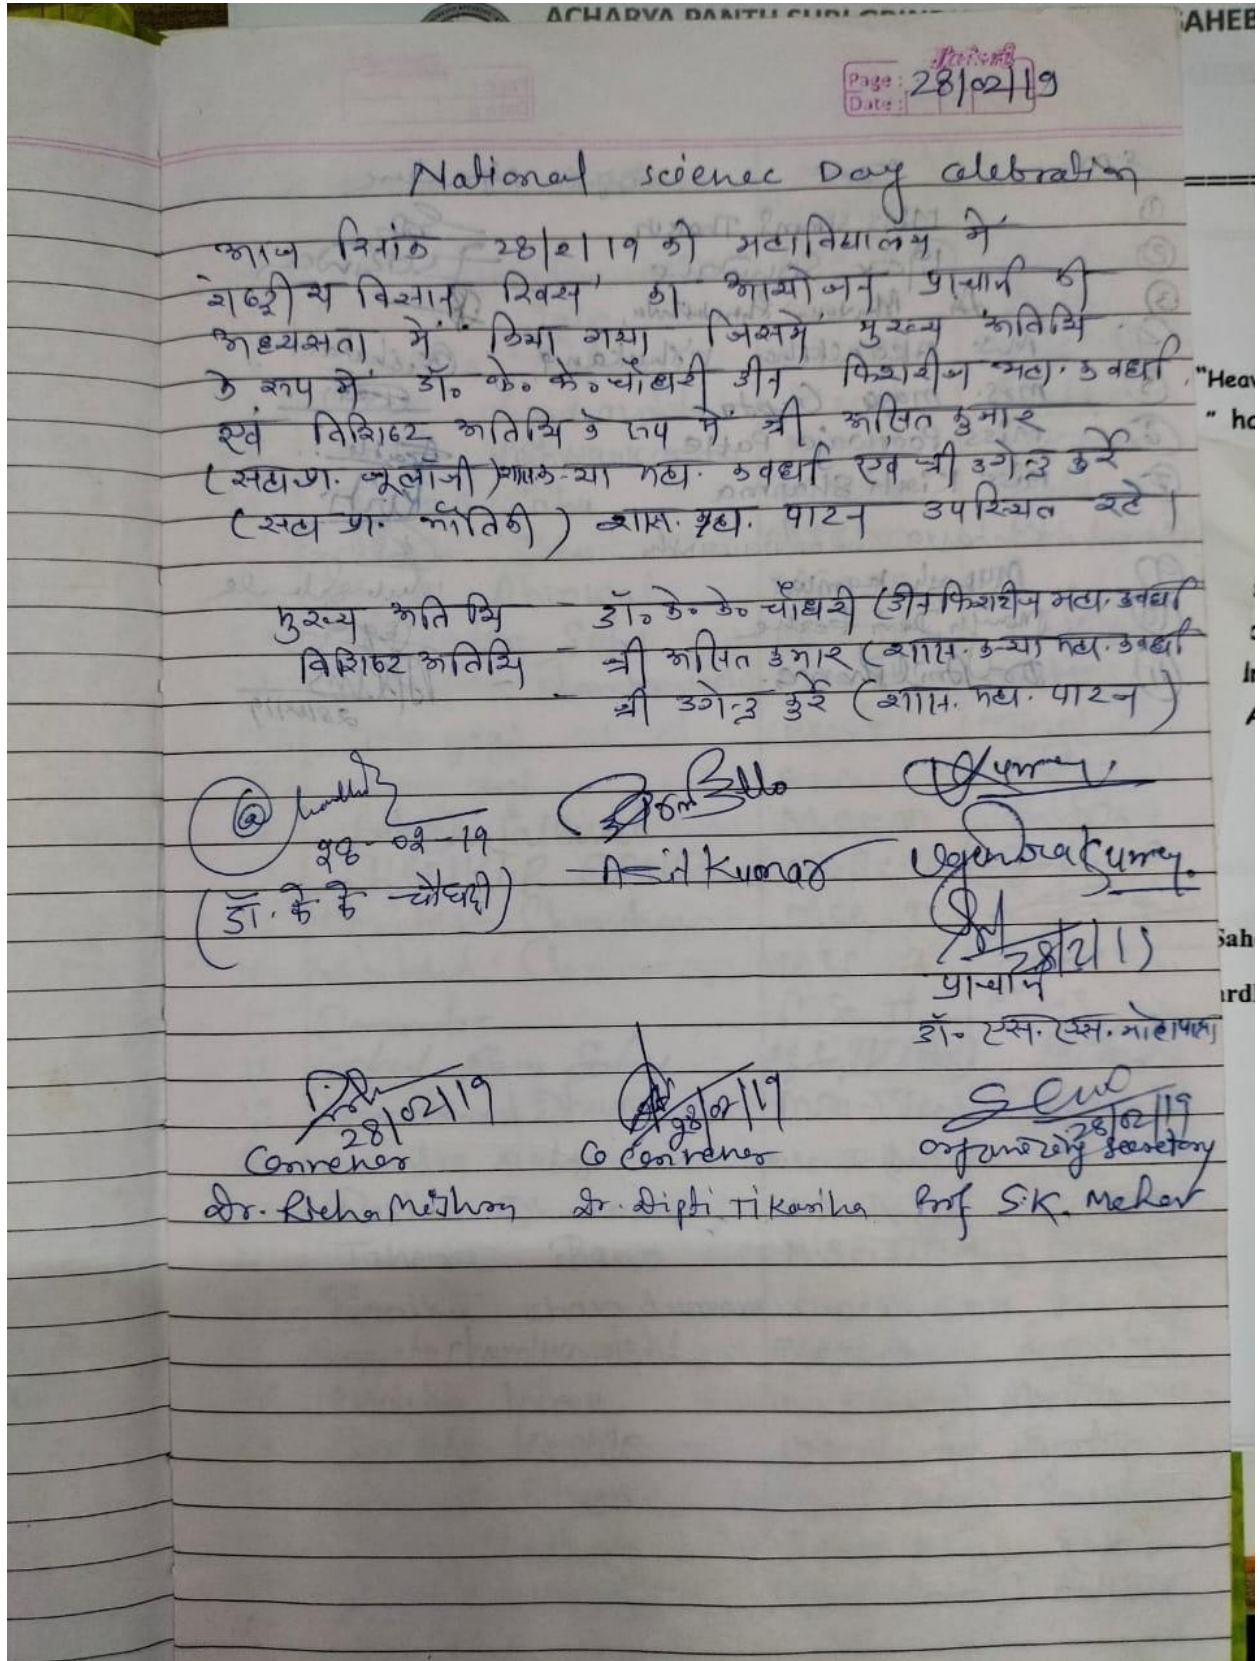 ACHARYA PANTH SHRI
SAHEB
Page:
Date:
28/02/19
National science Day celebration
आज दिनांक 28/2/19 को महाविद्यालय में
राष्ट्रीय विज्ञान दिवस का आयोजन प्राचार्य की
अध्यक्षता में किया गया जिसमें मुख्य अतिथि
के रूप में डॉ० के० के० चौधरी डीन फिशरीज महा. कवर्धा
एवं विशिष्ट अतिथि के रूप में श्री असित कुमार
(सहा.प्रा. जूलॉजी) शास. कन्या महा. कवर्धा एवं श्री उगेन्द्र कुर्रे
(सहा प्रा. भौतिकी) शास. महा. पाटन उपस्थित रहे।
मुख्य अतिथि - डॉ० के० के० चौधरी (डीन फिशरीज महा. कवर्धा
विशिष्ट अतिथि - श्री असित कुमार (शास. कन्या महा. कवर्धा
- श्री उगेन्द्र कुर्रे (शास. महा. पाटन)
28-02-19
(डॉ. के के चौधरी)
Asit Kumar
Ugendra Kurrey.
28/2/19
प्राचार्य
डॉ० एस. एस.
28/02/19
28/02/19
28/02/19
Convener
Co Convener
organizing Secretory
Dr. Richa Mishra
Dr. Dipti Tikariha
Prof S.K. Meher
"Heav
" ho
Sah